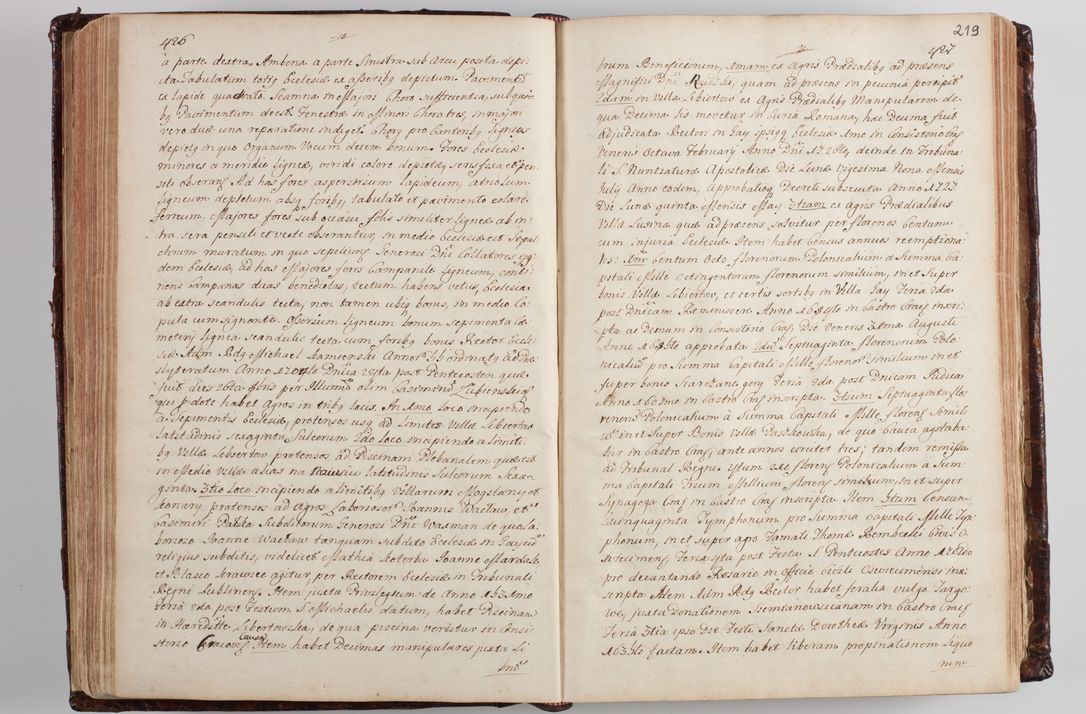 426
à parte dextra, Ambona a parte Sinistra sub Arcu posita depi
cta Tabulatum totis Ecclesiæ ex asseribq depictum Pavimentū
ex lapide quadrato. Scamna in Majori Choro sufficientia, sub quib9
bq Pavimentum deest. Fenestræ in Minori Choro tres, in majori
vero duæ una reparatione indiget. Chorq pro Cantoribq ligneus
depictq in quo Organum Vocum decem bonum. Fores Ecclesiæ
minores a meridie ligneæ, viridi colore depictæ, sera fixa et pen
sili obserant. Ad has fores aspersorium lapideum, atriolum
ligneum depictum absq foribq, tabulato et pavimento
ferreum. Majores fores sub occasu solis similiter ligneæ ab in
tra sera pensili et vecte obserantur, in medio Ecclesiæ est Sepul
chrum muratum in quo sepeliunt Generosi Dni Collatores
dem Ecclesiæ, ad has Majores fores Campanile ligneum, conti
nens Campanas duas benedictas, tectum habens vetus, Ecclesia
ab extra scandulis tecta, non tamen ubiq bonis, in medio Co
pula cum signonta. Ossorium ligneum bonum sepimenta Cæ
meterij lignea scandulis tecta cum foribq bonis Rector Eccle
siæ Adm Rdq Michael Kamienski Annor 44 ordinatq ad Præ
sbyteratum Anno
fuit dies 26ta Junis per Illumū olim Casimirū Lubienskieg
qui p dote habet Agros in tribq locis. In Imo Loco incipiendo
a Sepimentis Ecclesiæ, protensos usq ad Limites Villæ Libertow
Latitudinis sexaginta Sulcorum 2do Loco incipiendo a limiti
bq Villæ Libertow protensos ad Piscinam Plebanalem quæ est
in Medio Villæ alias na Latitudinis Sulcorum Sexa
ginta. 3tio Loco incipiendo a limitibq Villarum Mogilany et
Konary protensos ad Agros Laboriosor Joannis Wacław, et
Casimiri Palka Subditorum Generosi Dni Wasman de quo La
borioso Joanne Wacław tanquam subdito Ecclesiæ in
religiis subditis, videlicet Mathia Koterba Joanne Mardała
et Blasio Krawiec agitur, per Rectorem Ecclesiæ in Tribunali
Regni Lublinen. Item juxta Privilegium de Anno
Feria 2da post Festum S Michaelis datum, habet Piscinam
in Hæreditte Libertowska, de qua piscina vertitur in Consi
storio Cracovq Causa Item habet Decimas manipulares juxta Li
bru

219
427
brum Beneficiorum, Imam ex Agris Prædialibq ad præsens
Magnifici Dni quam ad præsens in pecunia percipit
2dam in Villa Libertow ex Agris Prædialibq Manipularem de
qua Decima lis movetur in Curia Romana, hæc Decima fuit
Adjudicata Rectori in Gay ipsiq Ecclesiæ Imo in Consistorio Crac
Veneris Octava February Anno Dni 1726to, deinde in Tribuna
li S Nuntiaturæ Apostolicæ Die Lunæ Vigesima Nona Mensis
July Anno eodem, Approbatioq Decreti subsecuta Anno 1727
Die Lunæ quinta Mensis May 3tiam ex Agris Prædialibus
Villæ Lusina quæ ad præsens solvitur per florenos Centum
cum injuria Ecclesiæ. Item habet Census annuos reemptiona
les: Imū Centum Octo florenorum Polonicalium a Summa Ca
pitali Mille Octingentorum florenorum similium, in et super
bonis Villæ Libertow, et certis sortibq in Villa Gay Feria 2da
post Dnicam Reminiscere Anno in Castro Crac inscri
pta ac Demum in Consistorio Crac Die Veneris 3tma Augusti
Anni approbata 2dū Septuaginta florenorum Polo
nicaliū pro Summa Capitali Mille florenor Similium in et
super bonis Siarczana gory Feria 2da post Dnicam Judica
Anno in Castro Crac inscripta 3tium Septuaginta flo
renor Polonicalium à Summa Capitali Mille florenq Simili
um in et Super Bonis Villæ Paszkowka, de quo Causa agitaba
tur in Castro Crac, ante annos circiter tres; tandem remissa
ad Tribunal Regni. 4tum 210 florenq Polonicalium a Sum
ma Capitali Trium Millium florenq similium, in et super
Synagoga Crac in Castro Crac inscripta. Item 5tum Censum
Quinquaginta Tymphonum pro Summa Capitali Mille Tym
phonum, in et super agro Famati Thomæ Bernheclis Civis O
swiecimenq, Feria 4ta post Festa S Pentecostes Anno
pro decantando Rosario in Officio Civili Oswiecimensi ins
cripta Item Adm Rdq Rector habet feralia vulgo Targo
we, juxta Donationem Siemianowscianam in Castro Crac
Feria 3tia ipso Die Festi Sanctæ Dorotheæ Virginis Anno
factam. Item habet liberam propinationem liquo
rum